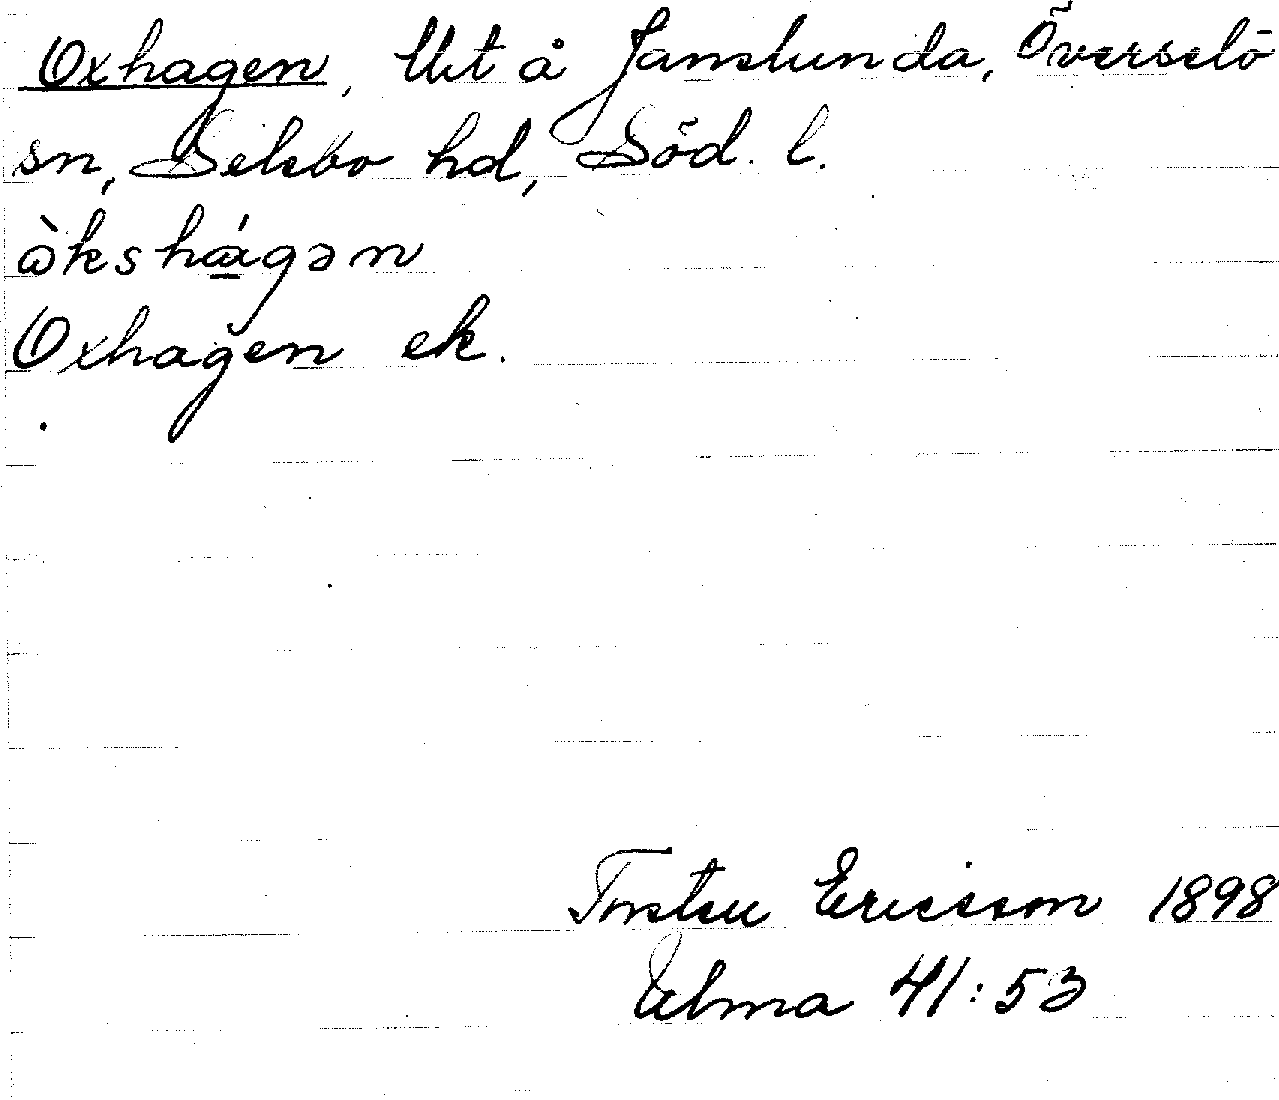 Oxhagen, Ut å Janslunda, Överselö
sn, Selebo hd, Söd. l.
ὼkshágən
Oxhagen ek.
Torsten Ericsson 1898
Ulma 41:53